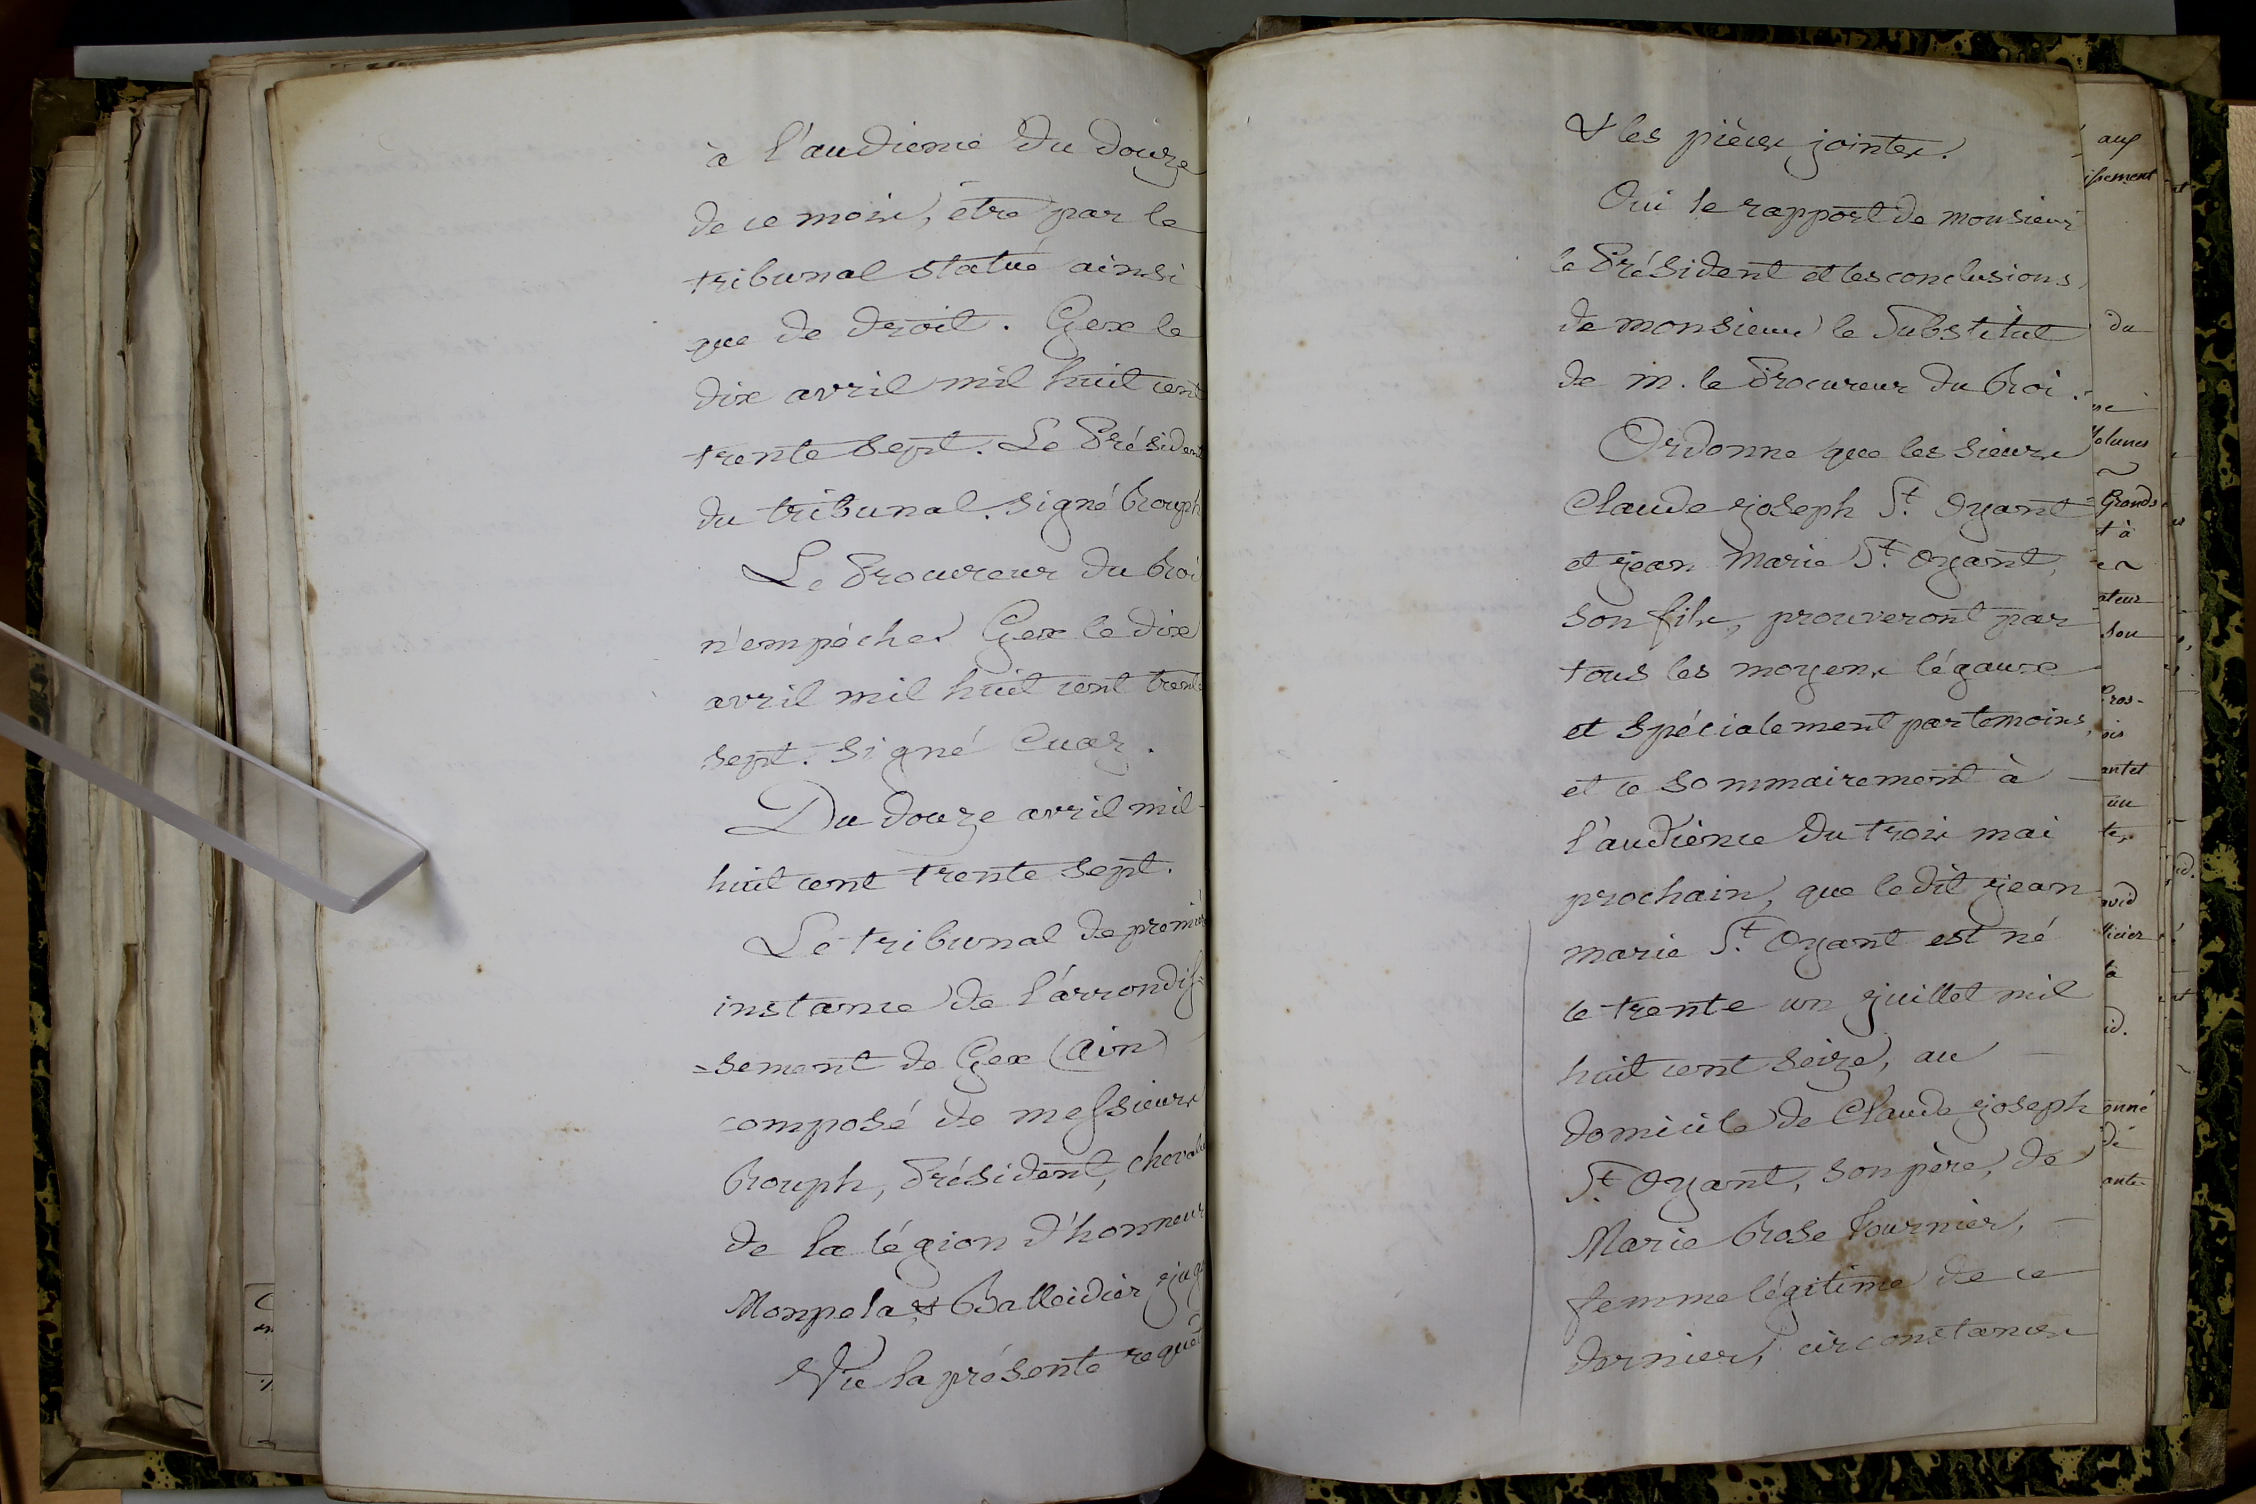 à l'audience du douze
de ce mois, être par le
tribunal statué ainsi
que de droit. Gex le
dix avril mil huit cent
trente sept. Le Président
du tribunal. signé Rouph
Le Procureur du Roi
n'empêche. Gex le dix
avril mil huit cent trente
sept. signé Cuaz.
Du douze avril mil
huit cent trente sept.
Le tribunal de première
instance de l'arrondis-
=sement de Gex (Ain)
composé de messieurs
Rouph, Président, chevalier
de la légion d'honneur
Monpela & Balleidier juges
Vu la présente requête
& les pièces jointes.
Oui le rapport de monsieur
le Président et les conclusions
de monsieur le Substitut
de m. le Procureur du Roi.
Ordonne que les sieurs
Claude joseph St. Oyant
et jean Marie St. Oyant,
son fils, prouveront par
tous les moyens légaux
et spécialement par temoins,
et ce sommairement à
l'audience du trois mai
prochain, que le dit jean
marie St. Oyant est né
le trente un juillet mil
huit cent seize, au
domicile de Claude joseph
St. Oyant, son père, de
Marie Rose Fournier,
femme légitime de ce
dernier, circonstances